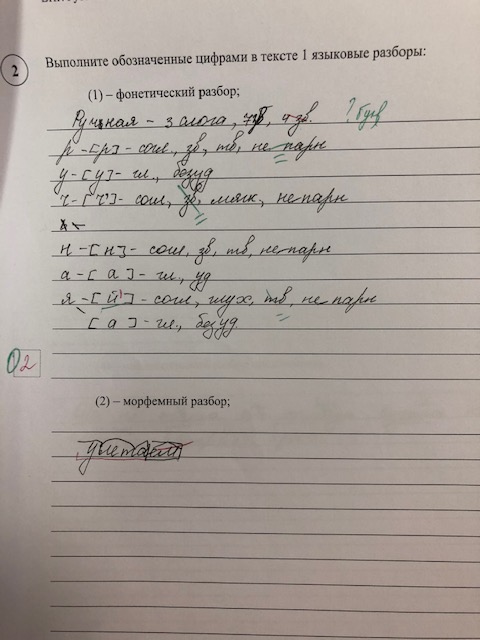 2
Выполните обозначенные цифрами в тексте 1 языковые разборы:
(1) – фонетический разбор;
Ручная – 3 слога, 7 б, зв. ? букв
р – [р] – согл., зв, тв, непарн
у – [у] – гл., безуд
ч – [ч'] – согл, зв, мягк, непарн
н – [н] – согл, зв, тв, непарн
а – [а] – гл., уд
я – [й'] – согл, глух, тв, непарн
[а] – гл., безуд.
2
(2) – морфемный разбор;